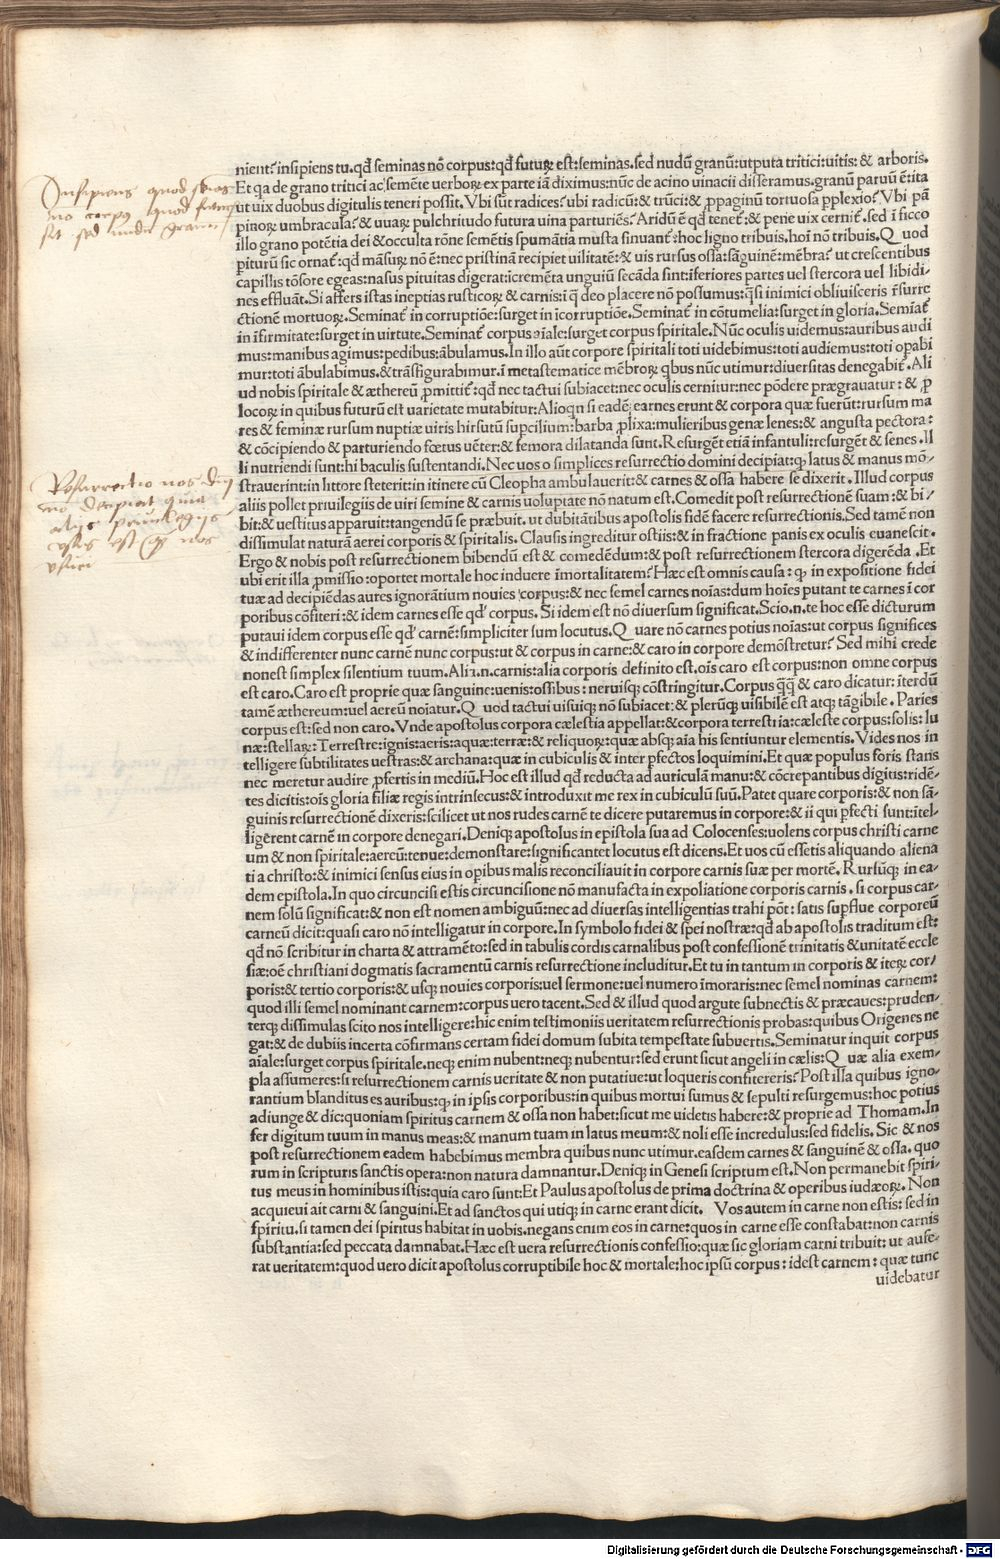 nient? insipiens tu. qđ seminas nō corpus: qđ futuꝝ est: seminas. sed nudū granū: utputa tritici: uitis: & arboris.
Et qa de grano tritici ac semēte uerboꝝ ex parte iā diximus: nūc de acino uinacii disseramus. granū paruū ē: ita
ut uix duobus digitulis teneri possit. Vbi sūt radices? ubi radicū: & trūci: & ꝓpaginū tortuosa ꝑplexio? Vbi pā
pinoꝝ umbracula? & uuaꝝ pulchritudo futura uina parturiēs? Aridū ē qđ tenet̄: & pene uix cernit̄. sed ī sicco
illo grano potētia dei & occulta rōne semētis spumātia musta sinuant̄: hoc ligno tribuis. hoī nō tribuis. Q uod
piturū sic ornat̄: qđ māsuꝝ nō ē: nec pristinā recipiet uilitatē: & uis rursus ossa: sāguinē: mēbra? ut crescentibus
capillis tōsore egeas: nasus pituitas digerat: icremēta unguiū secāda sint: iferiores partes uel stercora uel libidi-
nes effluāt. Si affers istas ineptias rusticoꝝ & carnis: q̄ deo placere nō possumus: q̄si inimici obliuisceris r̄surre
ctionē mortuoꝝ. Seminat̄ in corruptiōe: surget in īcorruptiōe. Seminat̄ in cōtumelia: surget in gloria. Semīat̄
in īfirmitate: surget in uirtute. Seminat̄ corpus aīale: surget corpus spiritale. Nūc oculis uidemus: auribus audi
mus: manibus agimus: pedibus: ābulamus. In illo aūt corpore spiritali toti uidebimus: toti audiemus: toti opabi
mur: toti ābulabimus. & trāsfigurabimur. ī metastematice mēbroꝝ qbus nūc utimur: diuersitas denegabit̄. Ali
ud nobis spiritale & æthereū ꝓmittit̄: qđ nec tactui subiacet: nec oculis cernitur: nec pōdere prægrauatur: & ꝓ
locoꝝ in quibus futurū est uarietate mutabitur: Alioqn si eadē: carnes erunt & corpora quæ fuerūt: rursum ma
res & feminæ rursum nuptiæ uiris hirsutū supcilium: barba ꝓlixa: mulieribus genæ lenes: & angusta pectora:
& cōcipiendo & parturiendo fœtus uēter: & femora dilatanda sunt. Resurgēt etiā infantuli: resurgēt & senes. Il
li nutriendi sunt: hi baculis sustentandi. Nec uos o simplices resurrectio domini decipiat: ꝙ latus & manus mō-
strauerint: in littore steterit: in itinere cū Cleopha ambulauerit: & carnes & ossa habere se dixerit. Illud corpus
aliis pollet priuilegiis de uiri semine & carnis uoluptate nō natum est. Comedit post resurrectionē suam: & bi-
bit: & uestitus apparuit: tangendū se præbuit. ut dubitātibus apostolis fidē facere resurrectionis. Sed tamē non
dissimulat naturā aerei corporis & spiritalis. Clausis ingreditur ostiis: & in fractione panis ex oculis euanescit.
Ergo & nobis post resurrectionem bibendū est & comedēdum: & post resurrectionem stercora digerēda. Et
ubi erit illa ꝓmissio: oportet mortale hoc induere īmortalitatem? Hæc est omnis causa: ꝙ in expositione fidei
tuæ ad decipiēdas aures ignorātium nouies corpus: & nec semel carnes noīas: dum hoīes putant te carnes ī cor
poribus cōfiteri: & idem carnes esse qđ corpus. Si idem est nō diuersum significat. Scio. n. te hoc esse dicturum
putaui idem corpus esse qđ carnē: simpliciter sum locutus. Q uare nō carnes potius noīas: ut corpus significes
& indifferenter nunc carnē nunc corpus: ut & corpus in carne: & caro in corpore demōstretur? Sed mihi crede
nonest simplex silentium tuum. Alia. n. carnis: alia corporis definito est. oīs caro est corpus: non omne corpus
est caro. Caro est proprie quæ sanguine: uenis: ossibus: neruisq; cōstringitur. Corpus q̄q̄ & caro dicatur: īterdū
tamē æthereum: uel aereū noīatur. Q uod tactui uisuiq; nō subiacet: & plerūq; uisibilē est atq; tāgibile. Paries
corpus est: sed non caro. Vnde apostolus corpora cælestia appellat: & corpora terrestria: cæleste corpus: solis: lu
næ: stellaꝝ: Terrestre: ignis: aeris: aquæ: terræ: & reliquoꝝ: quæ absq; aīa his sentiuntur elementis. Vides nos in
telligere subtilitates uestras: & archana: quæ in cubiculis & inter ꝑfectos loquimini. Et quæ populus foris stans
nec meretur audire ꝓfertis in mediū. Hoc est illud qđ reducta ad auriculā manu: & cōcrepantibus digitis: ridē-
tes dicitis: oīs gloria filiæ regis intrinsecus: & introduxit me rex in cubiculū suū. Patet quare corporis: & non sā-
guinis resurrectionē dixeris: scilicet ut nos rudes carnē te dicere putaremus in corpore: & ii qui ꝑfecti sunt: ītel-
ligerent carnē in corpore denegari. Deniq; apostolus in epistola sua ad Colocenses: uolens corpus christi carne
um & non spiritale: aereū: tenue: demonstare: significantet locutus est dicens. Et uos cū essetis aliquando aliena
ti a christo: & inimici sensus eius in opibus malis reconciliauit in corpore carnis suæ per mortē. Rursūq; in ea-
dem epistola. In quo circuncisi estis circuncisione nō manufacta in expoliatione corporis carnis. si corpus car-
nem solū significat: & non est nomen ambiguū: nec ad diuersas intelligentias trahi pōt: satis supflue corporeū
carneū dicit: quasi caro nō intelligatur in corpore. In symbolo fidei & spei nostræ: qđ ab apostolis traditum est:
qđ nō scribitur in charta & attramēto: sed in tabulis cordis carnalibus post confessionē trinitatis & unitatē eccle
siæ: oē christiani dogmatis sacramentū carnis resurrectione includitur. Et tu in tantum in corporis & iteꝝ cor-
poris: & tertio corporis: & usq; nouies corporis: uel sermone: uel numero īmoraris: nec semel nominas carnem:
quod illi semel nominant carnem: corpus uero tacent. Sed & illud quod argute subnectis & præcaues: pruden-
terq; dissimulas scito nos intelligere: hic enim testimoniis ueritatem resurrectionis probas: quibus Origenes ne
gat: & de dubiis incerta cōfirmans certam fidei domum subita tempestate subuertis. Seminatur inquit corpus
aīale: surget corpus spiritale. neq; enim nubent: neq; nubentur: sed erunt sicut angeli in cælis: Q uæ alia exem-
pla assumeres: si resurrectionem carnis ueritate & non putatiue: ut loqueris confitereris? Post illa quibus igno-
rantium blanditus es auribus: ꝙ in ipsis corporibus: in quibus mortui sumus & sepulti resurgemus: hoc potius
adiunge & dic: quoniam spiritus carnem & ossa non habet: sicut me uidetis habere: & proprie ad Thomam. In
fer digitum tuum in manus meas: & manum tuam in latus meum: & noli esse incredulus: sed fidelis. Sic & nos
post resurrectionem eadem habebimus membra quibus nunc utimur. easdem carnes & sanguinē & ossa. quo
rum in scripturis sanctis opera: non natura damnantur. Deniq; in Genesi scriptum est. Non permanebit spiri-
tus meus in hominibus istis: quia caro sunt: Et Paulus apostolus de prima doctrina & operibus iudæoꝝ. Non
acquieui ait carni & sanguini. Et ad sanctos qui utiq; in carne erant dicit. Vos autem in carne non estis: sed in
spiritu. si tamen dei spiritus habitat in uobis. negans enim eos in carne: quos in carne esse constabat: non carnis
substantia: sed peccata damnabat. Hæc est uera resurrectionis confessio: quæ sic gloriam carni tribuit: ut aufe-
rat ueritatem: quod uero dicit apostolus corruptibile hoc & mortale: hoc ipsū corpus: idest carnem: quæ tunc
uidebatur
Insipiens quod seminas
no corpus quod futurum
sit sed nudum granum
Resurrectio nos dni
no decipiat quia
alijs priuilegijs
usus est q nos
Digitalisierung gefördert durch die Deutsche Forschungsgemeinschaft - DFG